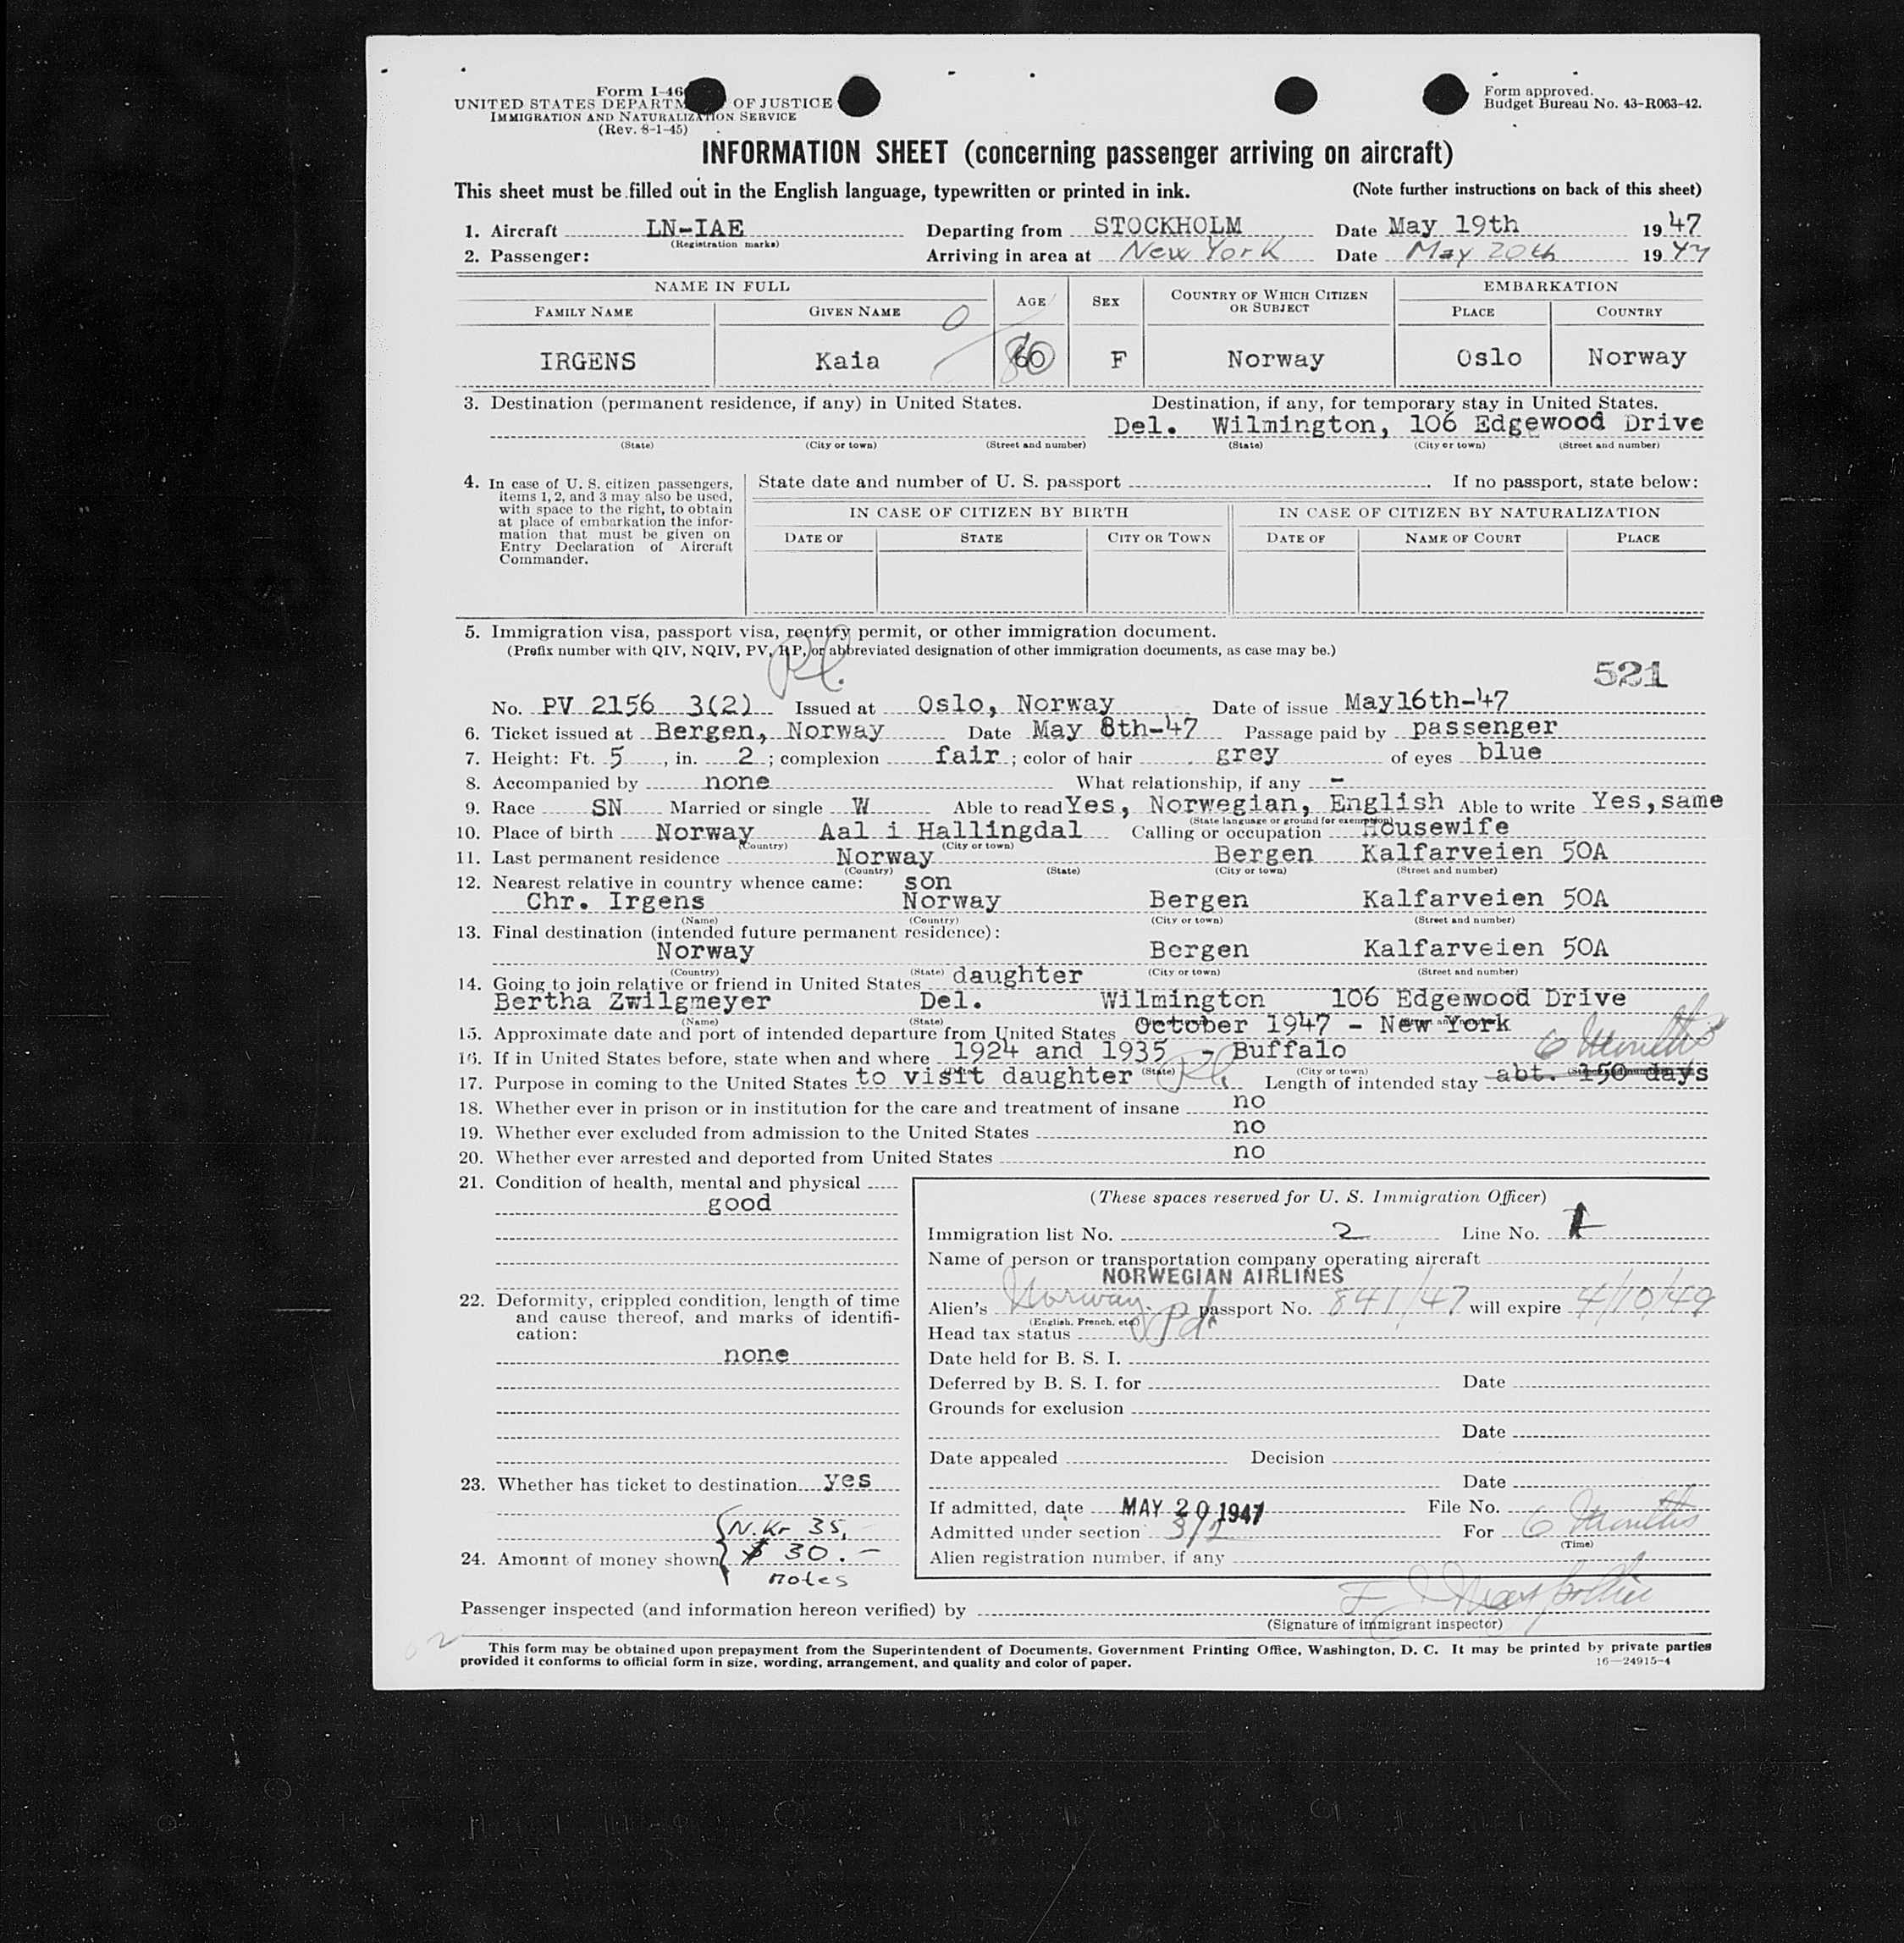 Form I-46
UNITED STATES DEPARTM OF JUSTICE
IMMIGRATION AND NATURALIZATION SERVICE
(Rev. 8-1-45)
Form approved.
Budget Bureau No. 43-R063-42.
INFORMATION SHEET (concerning passenger arriving on aircraft)
This sheet must be filled out in the English language, typewritten or printed in ink. (Note further instructions on back of this sheet)
1. Aircraft LN-IAE Departing from STOCKHOLM Date May 19th 1947
(Registration marks)
2. Passenger: Arriving in area at New York Date May 20th 1947
NAME IN FULL AGE SEX COUNTRY OF WHICH CITIZEN OR SUBJECT EMBARKATION
FAMILY NAME GIVEN NAME PLACE COUNTRY
IRGENS Kaia 60 F Norway Oslo Norway
3. Destination (permanent residence, if any) in United States. Destination, if any, for temporary stay in United States.
Del. Wilmington, 106 Edgewood Drive
(State) (City or town) (Street and number) (State) (City or town) (Street and number)
4. In case of U. S. citizen passengers, items 1, 2, and 3 may also be used, with space to the right, to obtain at place of embarkation the information that must be given on Entry Declaration of Aircraft Commander.
State date and number of U. S. passport If no passport, state below:
IN CASE OF CITIZEN BY BIRTH IN CASE OF CITIZEN BY NATURALIZATION
DATE OF STATE CITY OR TOWN DATE OF NAME OF COURT PLACE
5. Immigration visa, passport visa, reentry permit, or other immigration document.
(Prefix number with QIV, NQIV, PV, RP, or abbreviated designation of other immigration documents, as case may be.)
521
No. PV 2156 3(2) Issued at Oslo, Norway Date of issue May16th-47
6. Ticket issued at Bergen, Norway Date May 8th-47 Passage paid by passenger
7. Height: Ft. 5, in. 2; complexion fair; color of hair grey of eyes blue
8. Accompanied by none What relationship, if any -
9. Race SN Married or single W Able to read Yes, Norwegian, English Able to write Yes, same
(State language or ground for exemption)
10. Place of birth Norway Aal i Hallingdal Calling or occupation Housewife
(Country) (City or town)
11. Last permanent residence Norway Bergen Kalfarveien 50A
(Country) (State) (City or town) (Street and number)
12. Nearest relative in country whence came: son
Chr. Irgens Norway Bergen Kalfarveien 50A
(Name) (Country) (City or town) (Street and number)
13. Final destination (intended future permanent residence):
Norway Bergen Kalfarveien 50A
(Country) (State) (City or town) (Street and number)
14. Going to join relative or friend in United States daughter
Bertha Zwilgmeyer Del. Wilmington 106 Edgewood Drive
(Name) (State)
15. Approximate date and port of intended departure from United States October 1947 - New York
6 Months
16. If in United States before, state when and where 1924 and 1935 - Buffalo
(State) (City or town)
17. Purpose in coming to the United States to visit daughter Length of intended stay abt. 150 days
18. Whether ever in prison or in institution for the care and treatment of insane no
19. Whether ever excluded from admission to the United States no
20. Whether ever arrested and deported from United States no
21. Condition of health, mental and physical
good
22. Deformity, crippled condition, length of time and cause thereof, and marks of identification:
none
23. Whether has ticket to destination yes
N. Kr 35,-
24. Amount of money shown $ 30.-
notes
(These spaces reserved for U. S. Immigration Officer)
Immigration list No. 2 Line No. 1
Name of person or transportation company operating aircraft
NORWEGIAN AIRLINES
Alien's Norway passport No. 841/47 will expire 4/10/49
(English, French, etc.)
Head tax status pd
Date held for B. S. I.
Deferred by B. S. I. for Date
Grounds for exclusion
Date
Date appealed Decision
Date
If admitted, date MAY 20 1947 File No.
Admitted under section 3/2 For 6 Months
(Time)
Alien registration number, if any
Passenger inspected (and information hereon verified) by
(Signature of immigrant inspector)
This form may be obtained upon prepayment from the Superintendent of Documents, Government Printing Office, Washington, D. C. It may be printed by private parties
provided it conforms to official form in size, wording, arrangement, and quality and color of paper. 16—24915-4